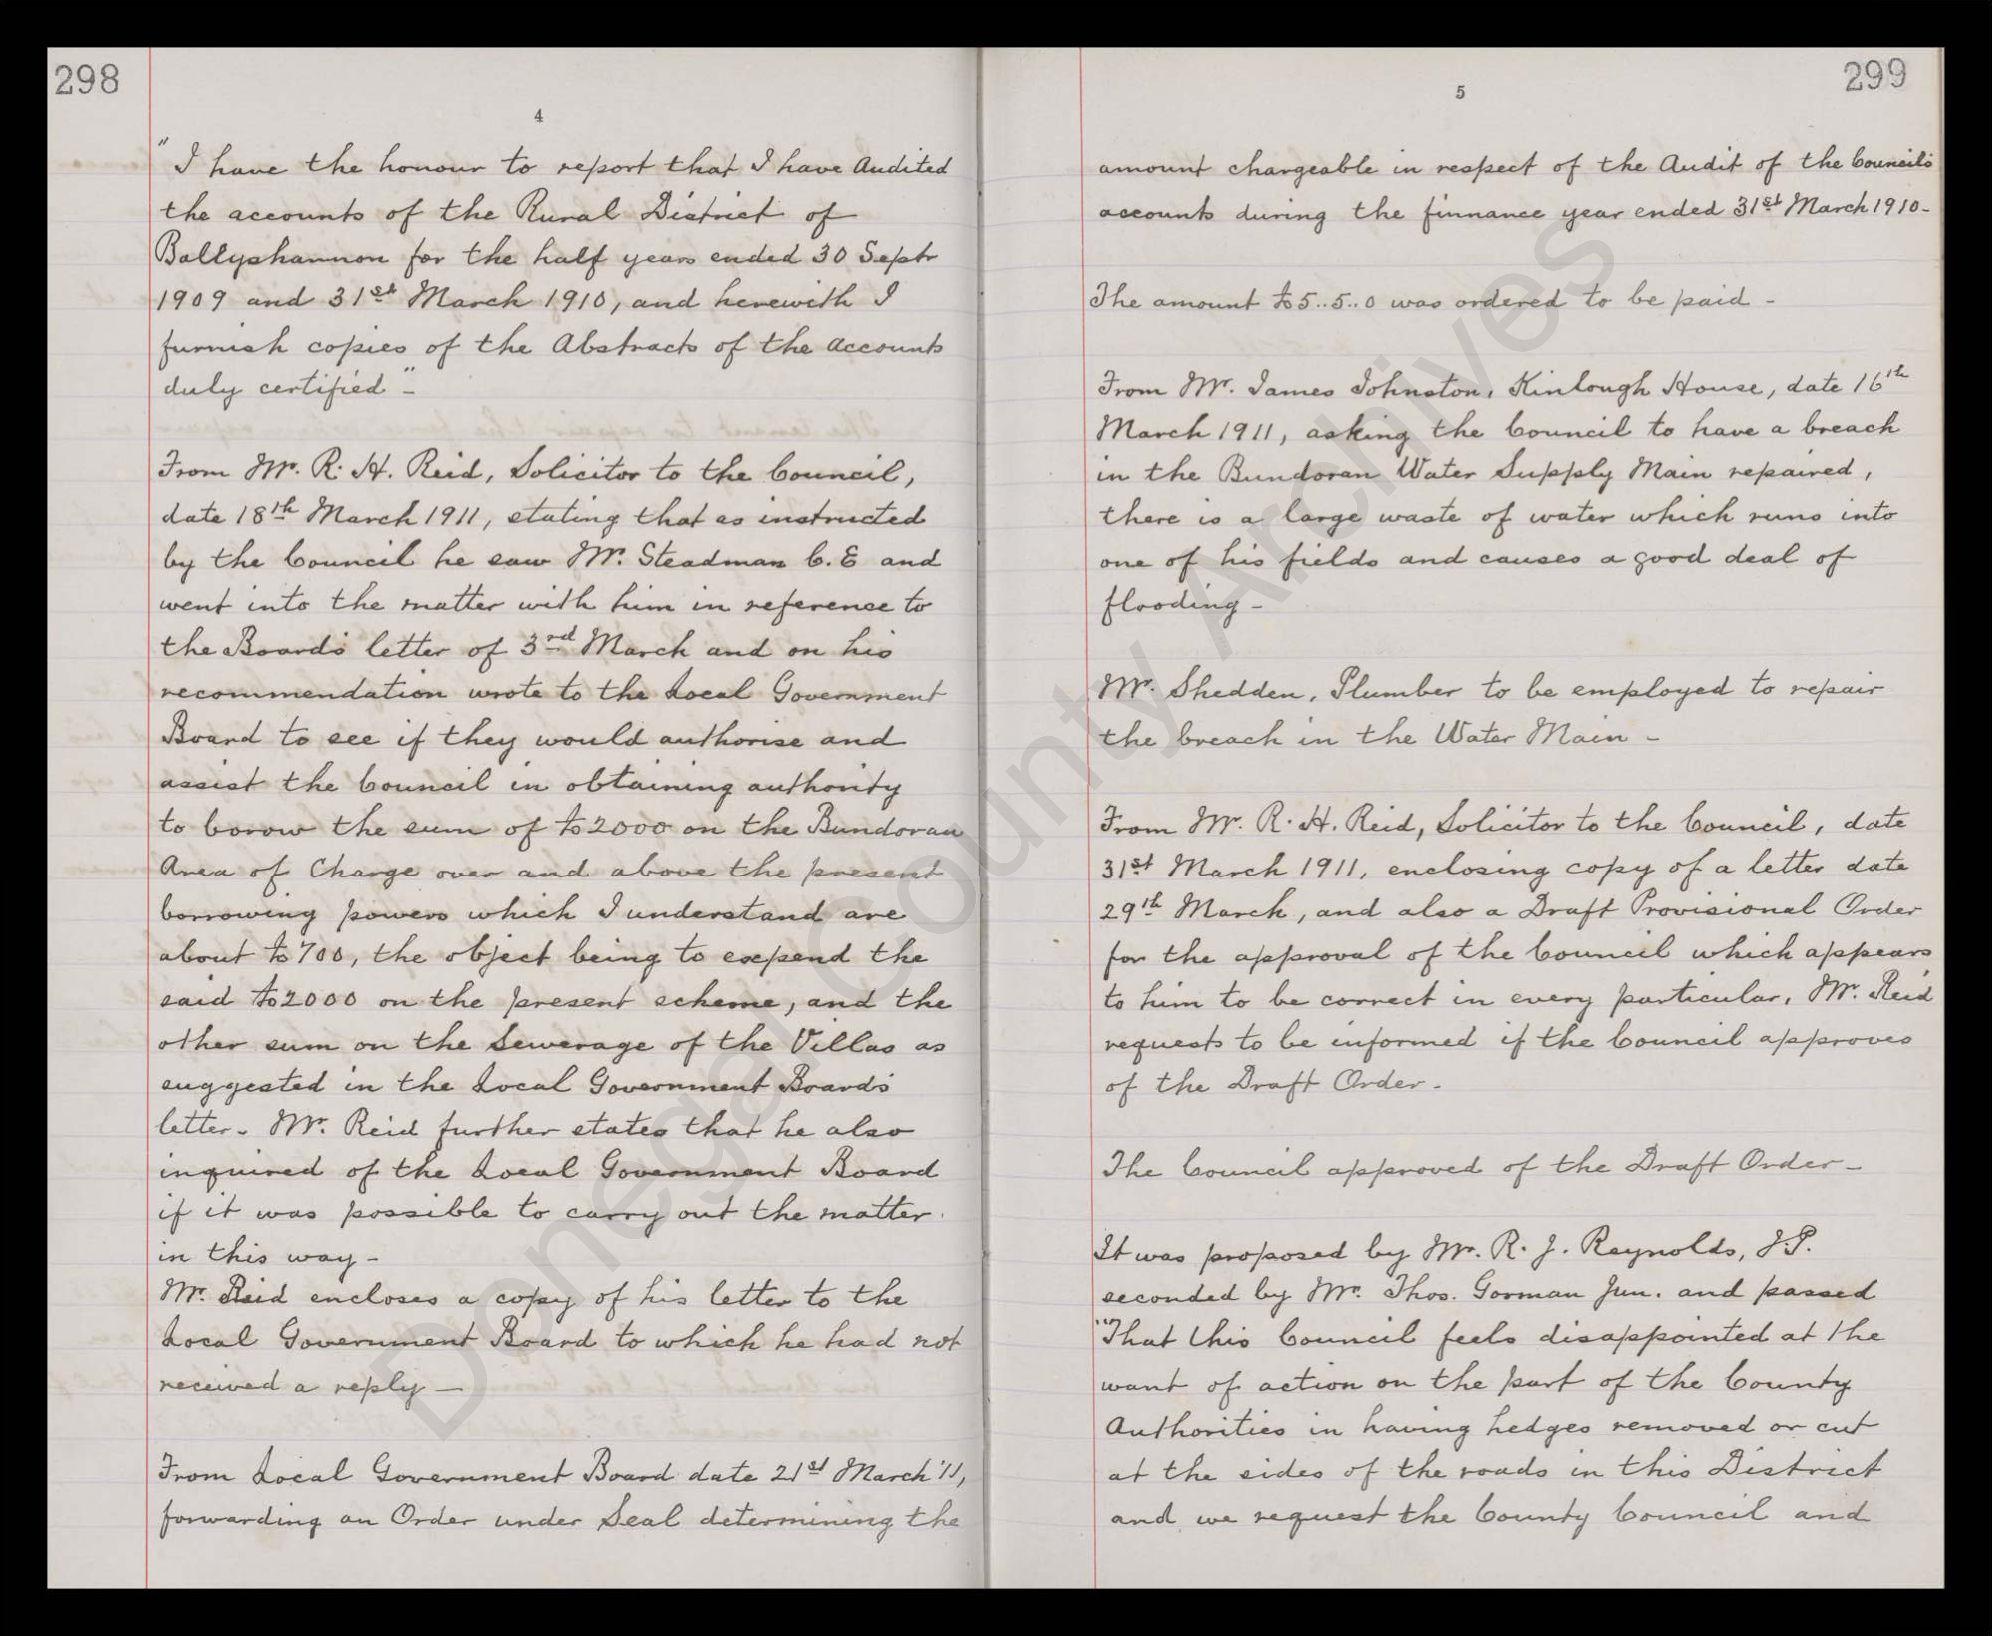 298
4
"I have the honour to report that I have Audited
the accounts of the Rural District of
Ballyshannon for the half years ended 30 Septr
1909 and 31st March 1910, and herewith I
furnish copies of the Abstracts of the accounts
duly certified" -
From Mr. R. H. Reid, Solicitor to the Council,
date 18th March 1911, stating that as instructed
by the Council he saw Mr. Steadman C. E and
went into the matter with him in reference to
the Board's letter of 3rd March and on his
recommendation wrote to the Local Government
Board to see if they would authorise and
assist the Council in obtaining authority
to borow the sum of £2000 on the Bundoran
Area of Charge over and above the present
borrowing powers which I understand are
about £700, the object being to expend the
said £2000 on the present scheme, and the
other sum on the Sewerage of the Villas as
suggested in the Local Government Board's
letter - Mr. Reid further states that he also
inquired of the Local Government Board
if it was possible to carry out the matter
in this way -
Mr. Reid encloses a copy of his letter to the
Local Government Board to which he had not
received a reply -
From Local Government Board date 21st March '11,
forwarding an Order under Seal determining the
299
5
amount chargeable in respect of the Audit of the Council's
accounts during the finnance year ended 31st March 1910-
The amount £5..5..0 was ordered to be paid -
From Mr. James Johnston, Kinlough House, date 16th
March 1911, asking the Council to have a breach
in the Bundoran Water Supply Main repaired,
there is a large waste of water which runs into
one of his fields and causes a good deal of
flooding -
Mr. Shedden, Plumber to be employed to repair
the breach in the Water Main -
From Mr. R. H. Reid, Solicitor to the Council, date
31st March 1911, enclosing copy of a letter date
29th March, and also a Draft Provisional Order
for the approval of the Council which appears
to him to be correct in every particular, Mr. Reid
requests to be informed if the Council approves
of the Draft Order -
The Council approved of the Draft Order -
It was proposed by Mr. R. J. Reynolds, J.P.
seconded by Mr. Thos. Gorman Jun. and passed
"That this Council feels disappointed at the
want of action on the part of the County
Authorities in having hedges removed or cut
at the sides of the roads in this District
and we request the County Council and
Donegal County Archives